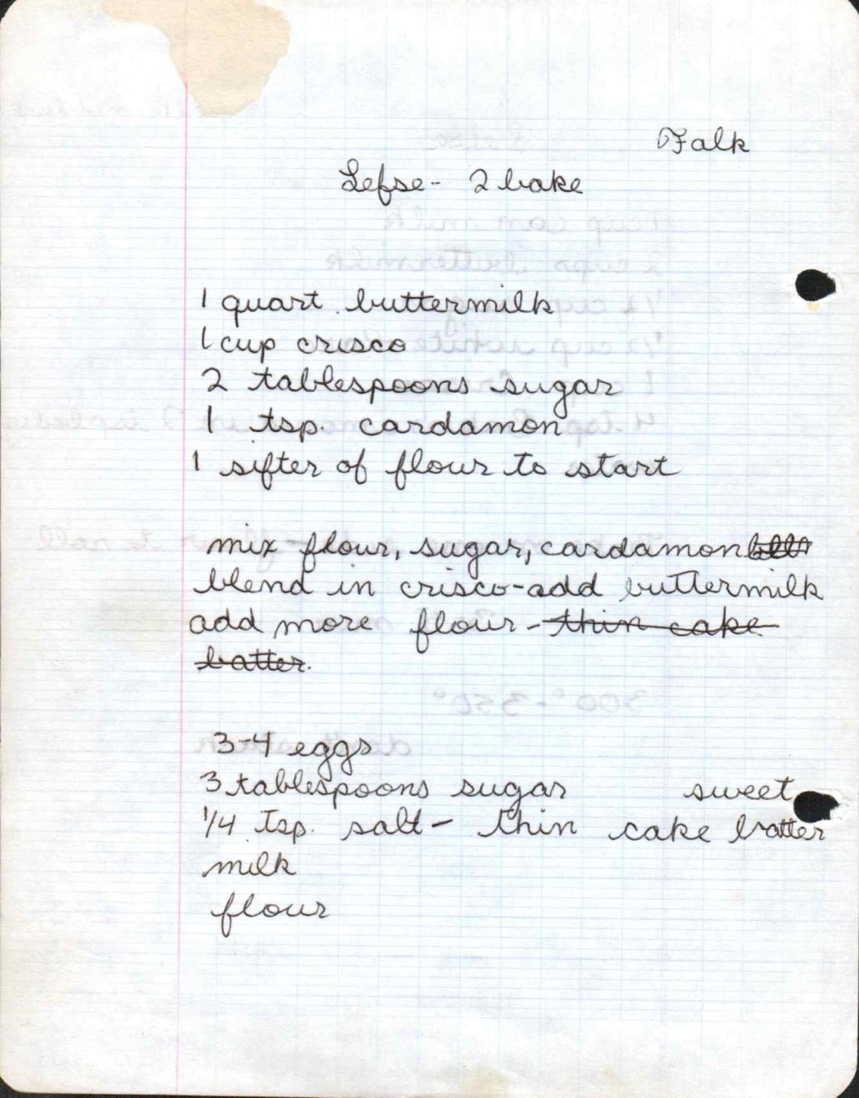 Falk
Lefse - 2 bake
1 quart buttermilk
1 cup crisco
2 tablespoons sugar
1 tsp. cardamon
1 sifter of flour to start
mix flour, sugar, cardamon
blend in crisco-add buttermilk
add more flour - thin cake
batter.
3-4 eggs
3 tablespoons sugar sweet
1/4 tsp. salt - thin cake batter
milk
flour